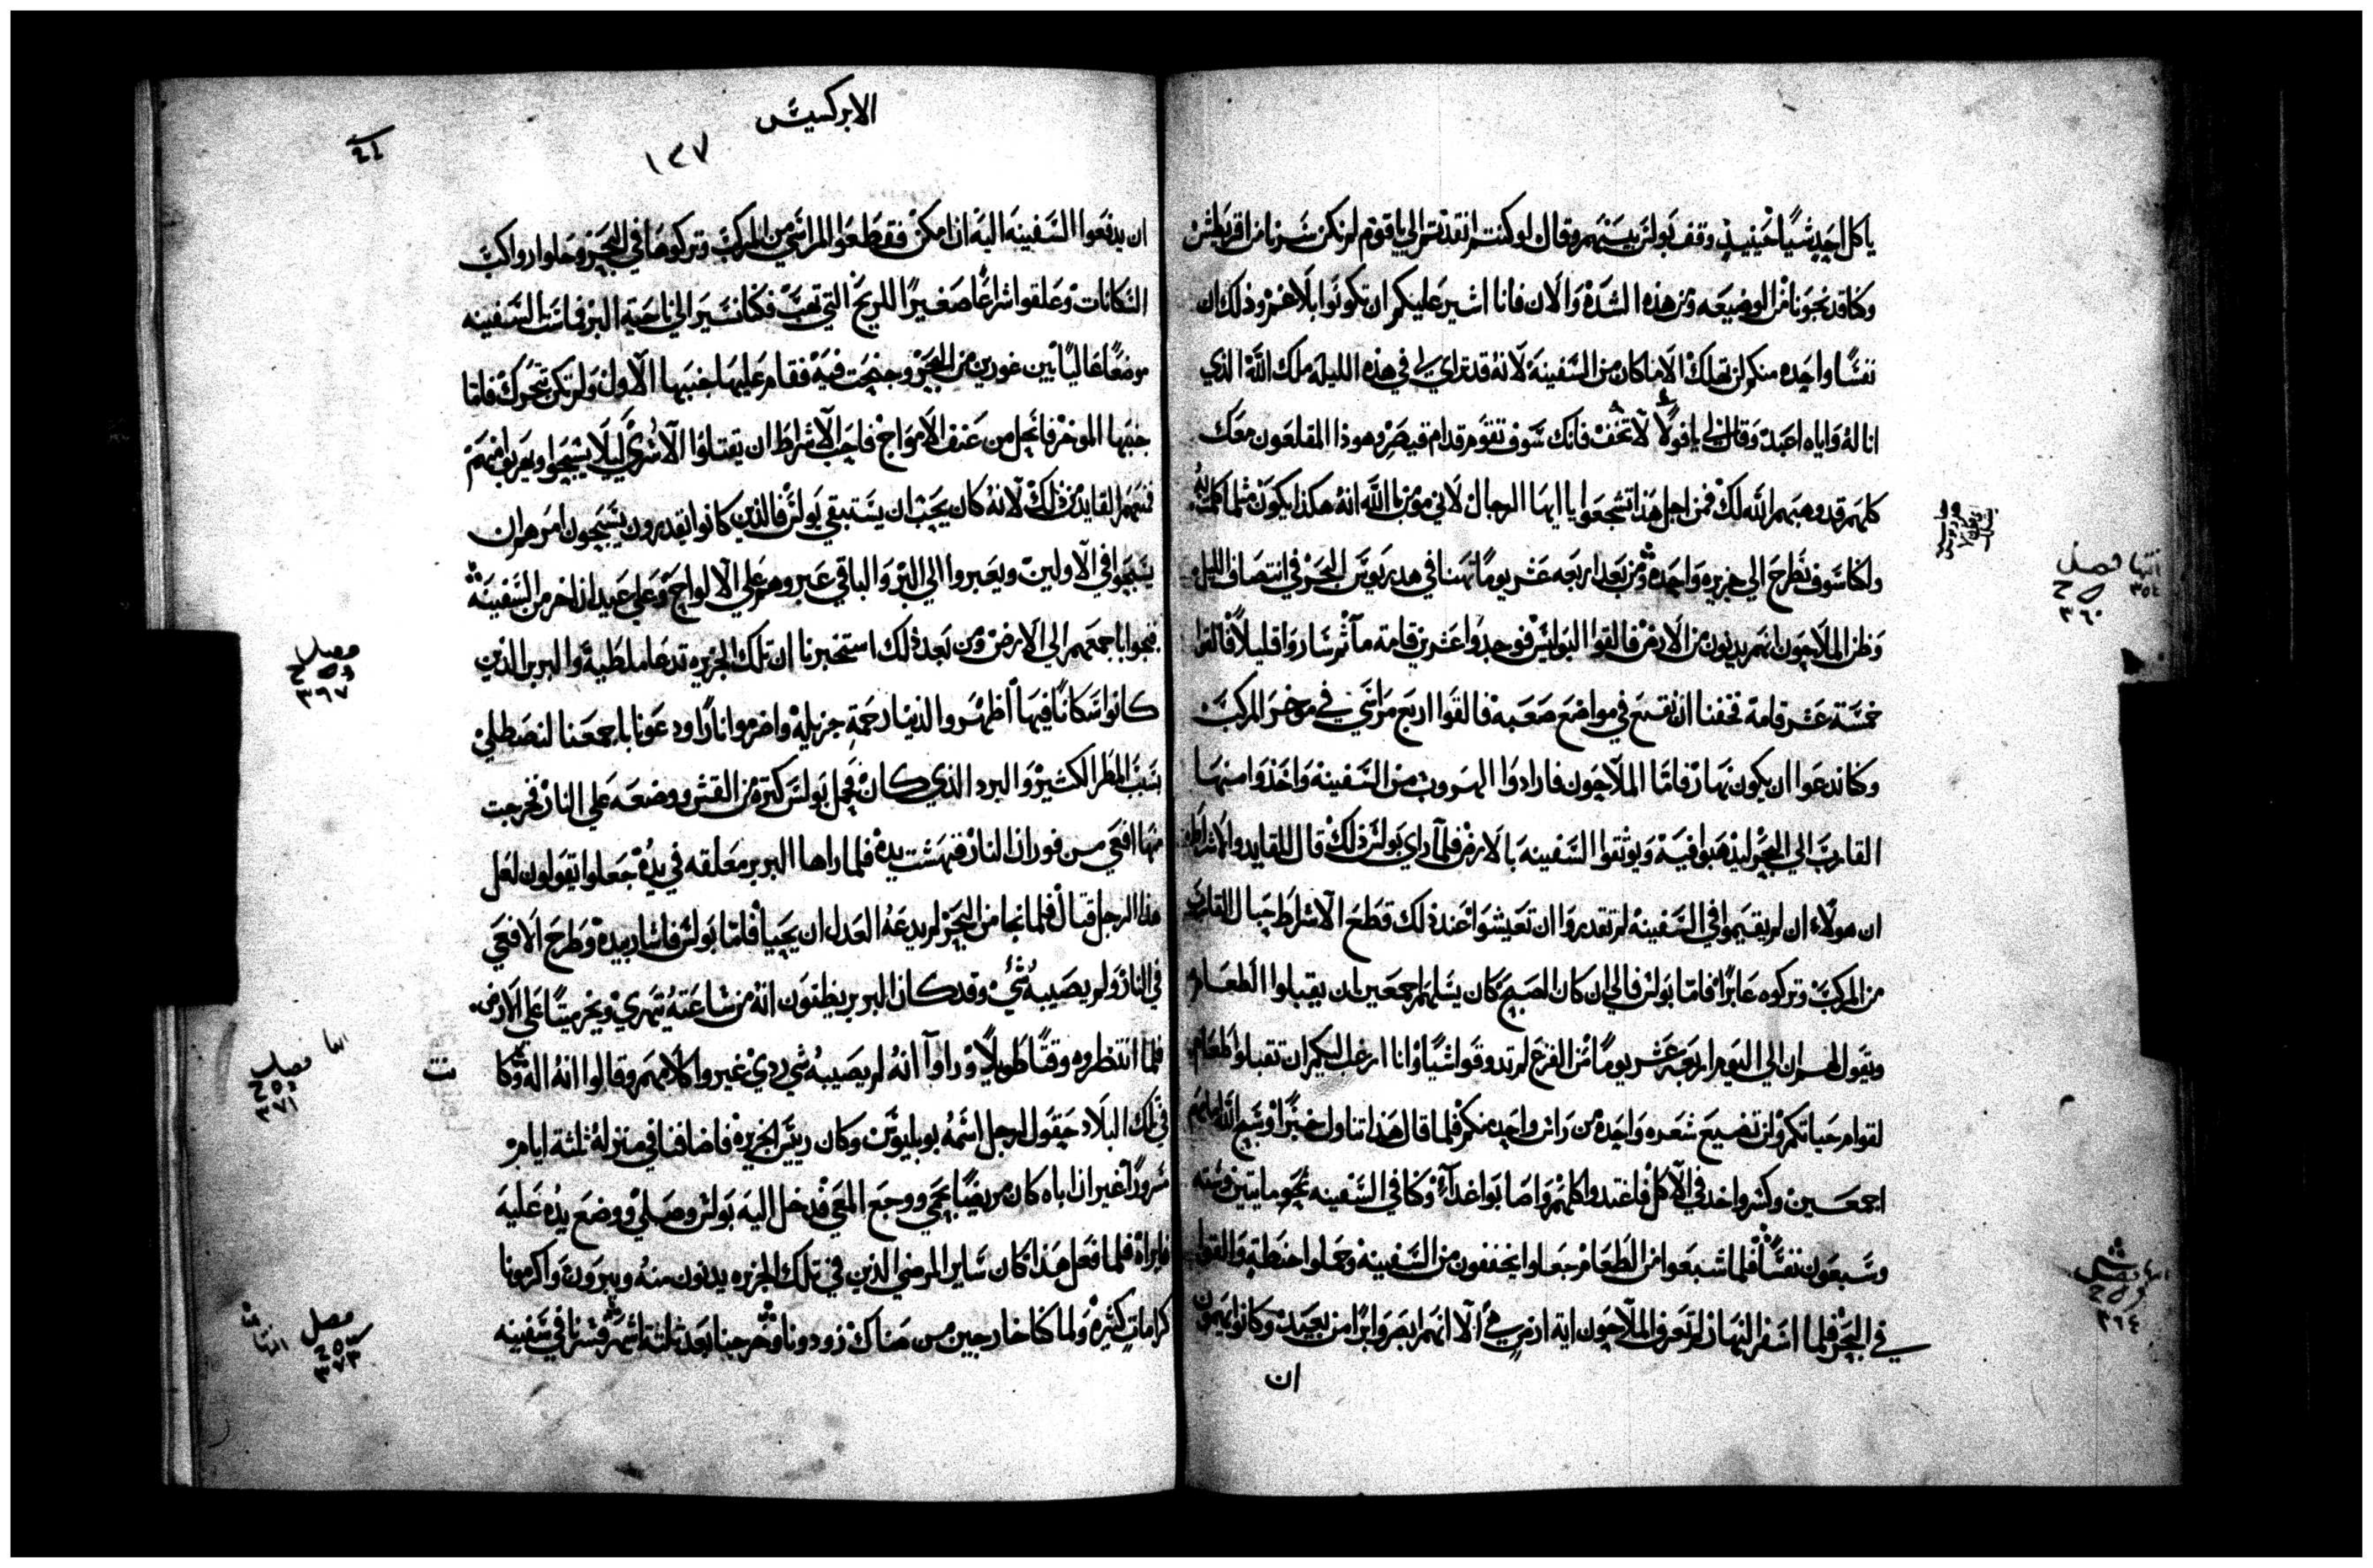 ياكل احد شيا حينيذ وقف بولس بينهم وقال لو كنتم انقدتم الي ياقوم لم نكن سرنا من اقريطش
وكنا قد نجونا من الوضيعه ومن هذه الشده والان فانا اشير عليكم ان تكونوا بلا غم وذلك ان
نفسا واحده منكم لن تهلك الا ما كان من السفينه لانه قد تراي لي في هذه الليله ملك الله الذي
انا له واياه اعبد وقال لي يا فولا لا تخف فانك سوف تقوم قدام قيصر وهوذا المقلعون معك
كلهم قد وهبهم الله لك فمن اجل هذا تشجعوا يا ايها الرجال لاني مومن بالله انه هكذا يكون مثلما كلمت به
ولكنا سوف نطرح الي جزيره واحده ومن بعد اربعه عشر يوما تهنا في هدريوس البحر في انتصاف الليل
وظن الملاحون انهم يدنون من الارض فالقوا البوليس فوجدوا عشرين قامة ما ثم ساروا قليلا فالقوا
خمسة عشر قامة فخفنا ان نقع في مواضع صعبه فالقوا اربع مراسي في موخر المركب
وكنا ندعوا ان يكون نهار فاما الملاحون فارادوا الهروب من السفينة واخذوا منها
القارب الي البحر ليذهبوا فيه ويوثقوا السفينه بالارض فلما راي بولس ذلك قال للقايد والاشراط
ان هولاء ان لم يقيموا في السفينه لم تقدروا ان تعيشوا عند ذلك قطع الاشراط حبال القارب
من المركب وتركوه عابرا فاما بولس فالي ان كان الصبح كان يسلهم اجمعين ان يقبلوا الطعام
ويقول لهم ان الي اليوم اربعة عشر يوما من الفزع لم تدوقوا شيا وانا ارغب اليكم ان تقبلوا طعام
لقوام حياتكم ولن تضيع شعره واحده من راس واحد منكم فلما قال هذا تناول خبزا وسبح الله امامهم
اجمعين وكسر واخد في الاكل فاغتدوا كلهم واصابوا غداء وكنا في السفينه نحو مايتين وسته
وسبعون نفسا فلما شبعوا من الطعام جعلوا يخففون من السفينة وحملوا حنطة والقوا
في البحر فلما اسفر النهار لم تعرف الملاحون اية ارض هي الا انهم ابصروا برا من بعيد وكانوا يهمون
ان
انتها فصل
٣٥٤
٣٦٠
فصل
٣٦٤
الابركسيس
١٢٧
ان يدفعوا السفينه اليه ان امكن فقطعوا المراسي من المركب وتركوها في البحر وحلوا رواكب
السكانات وعلقوا شراعا صغيرا للريح التي تهب فكنا نسير الي ناحية البر فماست السفينه
موضعا عاليا بين غورين من البحر وجنحت فيه فقام عليها جنبها الاول ولم تكن تتحرك فاما
جنبها الموخر فانحل من عنف الامواج فاحب الاشراط ان يقتلوا الاسري ليلا يسبحوا ويهربوا منهم
فمنعهم القايد من ذلك لانه كان يحب ان يستبقي بولس فالذين كانوا يقدرون يسبحون امرهم ان
يسبحوا في الاولين ويعبروا الي البر والباقي عبروهم علي الالواح وعلي عيدان اخر من السفينه
فنجوا باجمعهم الي الارض ومن بعد ذلك استخبرنا ان تلك الجزيره تدعا ملطية والبربر الذين
كانوا سكانا فيها اظهروا لدينا رحمة جزيله واضرموا نارا ودعونا باجمعنا لنصطلي
بسبب المطر الكثير والبرد الذي كان فحمل بولس كثره من القش ووضعه علي النار فخرجت
منها افعي من فوران النار فنهشت يده فلما راها البربر معلقه في يده جعلوا يقولون لعل
هذا الرجل قتال فلما نجا من البحر لم يدعه العدل ان يحيا فاما بولس فاشار بيده وطرح الافعي
في النار ولم يصيبه شي وقد كان البربر يظنون انه من ساعته يتهري ويخر ميتا علي الارض
فلما انتظروه وقتا طويلا وراوا انه لم يصيبه شي ردي غيروا كلامهم وقالوا انه اله وكا
في تلك البلاد حقول لرجل اسمه بوبليوس وكان ريس الجزيره فاضافنا في منزله ثلثة ايام
مسرورا غير ان اباه كان مريضا بحمي ووجع المعي فدخل اليه بولس وصلي ووضع يده عليه
فابراه فلما فعل هذا كان ساير المرضي الذين في تلك الجزيره يدنون منه ويبرون واكرمونا
كرامات كثيره ولما كنا خارجين من هناك زودونا وخرجنا بعد ثلثة اشهر فسرنا في سفينه
فصل
٣٦٧
فصل
٣٧١
فصل
٣٧٣